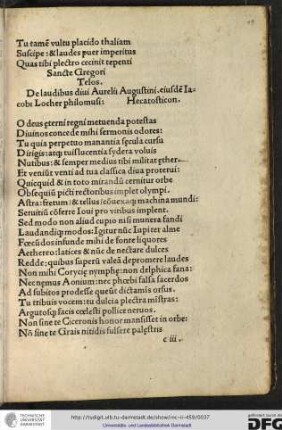 Tu tamē vultu placido thaliam
Suscipe: & laudes puer imperitus
Quas tibi plectro cecinit repenti
Sancte Gregori
Telos.
De laudibus diui Aurelii Augustini. eiusdē Ia-
cobi Locher philomusi: Hecatosticon.
O deus ęterni regni metuenda potestas
Diuinos concede mihi sermonis odores:
Tu quia perpetuo manantia sęcula cursu
Dirigis: atq; tuis lucentia sydera voluis
Nutibus: & semper medius tibi militat ether.
Et veniūt venti ad tua classica diua proterui:
Quicquid & in toto mirandū cernitur orbe
Obsequiū picti rectoribus implet olympi.
Astra: fretum: & tellus
Seruitiū cōferre Ioui pro viribus implent.
Sed modo non aliud cupio nisi munera sandi
Laudandiq; modos: Igitur nūc Iupiter alme
Fœcūdos infunde mihi de fonte liquores
Aethereo: latices & nūc de nectare dulces
Redde: quibus superū valeā depromere laudes
Non mihi Corycię nymphę: non delphica fana:
Nec nemus Aonium: nec phœbi falsa sacerdos
Ad subitos prodesse queūt dictaminis orsus.
Tu tribuis vocem: tu dulcia plectra mistras:
Argutosq; facis cœlesti pollice neruos.
Non sine te Ciceronis honor mansisset in orbe:
Nō sine te Graiis nitidis fulsere palestris
c iii
TECHNISCHE UNIVERSITÄT DARMSTADT
http://tudigit.ulb.tu-darmstadt.de/show/inc-ii-459/0037
Universitäts- und Landesbibliothek Darmstadt
gefördert durch die
DFG